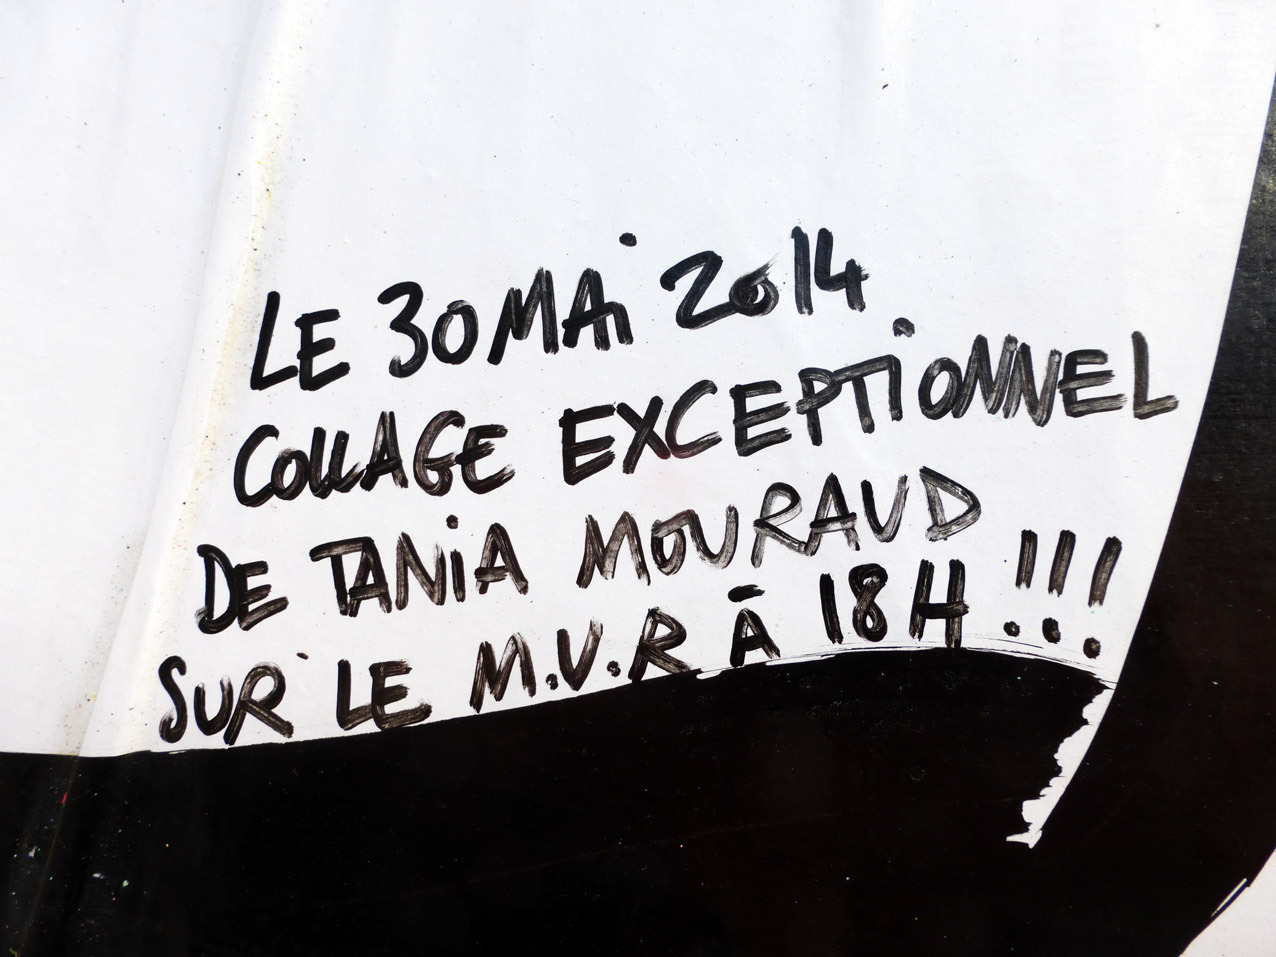 LE 30 MAi 2014
COLLAGE EXCEPTiONNEL
DE TANiA MOURAUD
SUR LE M.U.R À 18H !!!